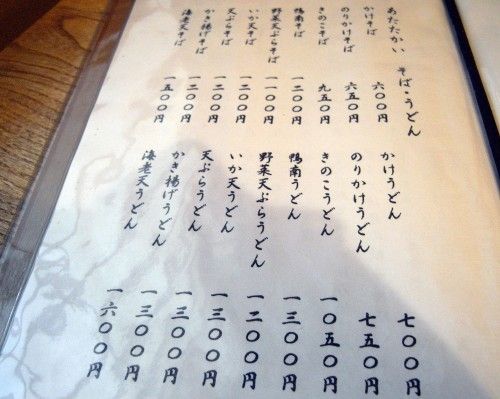 あたたかい そば・うどん
かけそば 六〇〇円
のりかけそば 六五〇円
きのこそば 九五〇円
鴨南そば 一二〇〇円
野菜天ぷらそば 一一〇〇円
いか天そば 一二〇〇円
天ぷらそば 一二〇〇円
かき揚げそば 一二〇〇円
海老天そば 一五〇〇円
かけうどん 七〇〇円
のりかけうどん 七五〇円
きのこうどん 一〇五〇円
鴨南うどん 一三〇〇円
野菜天ぷらうどん 一二〇〇円
いか天うどん 一三〇〇円
天ぷらうどん 一三〇〇円
かき揚げうどん 一三〇〇円
海老天うどん 一六〇〇円